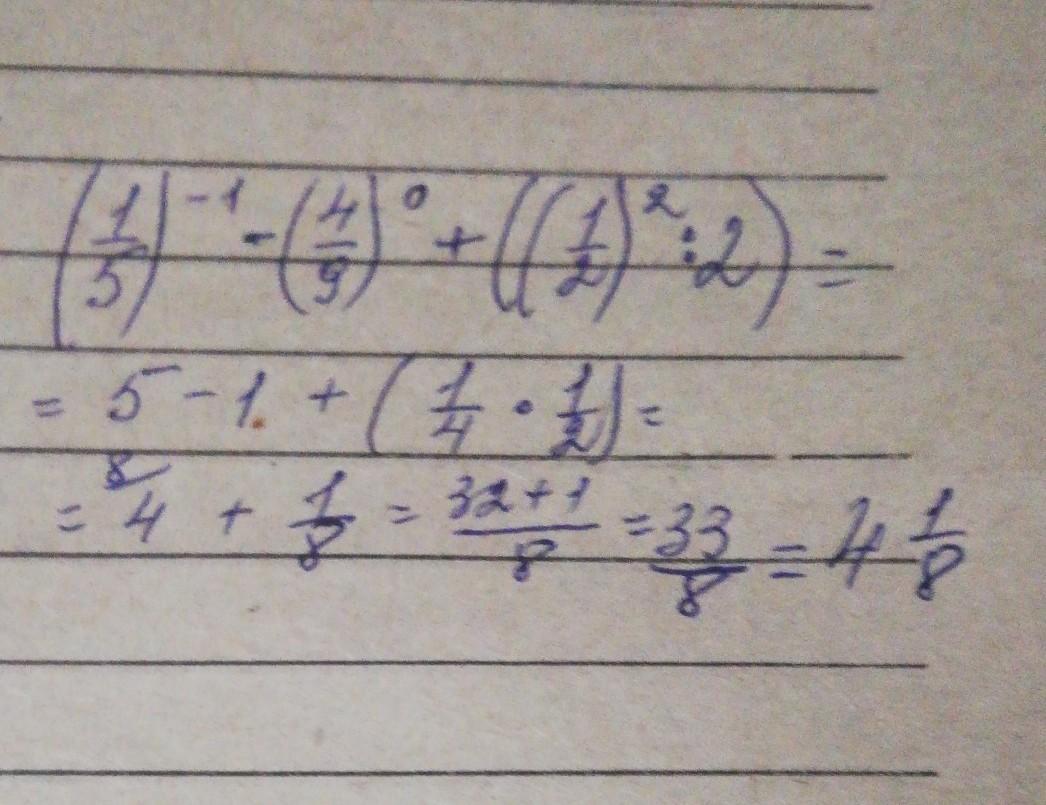 (1/5)^-1 - (4/9)^0 + ((1/2)^2 : 2) =
= 5 - 1 + (1/4 · 1/2) =
= 4^8 + 1/8 = 32+1/8 = 33/8 = 4 1/8